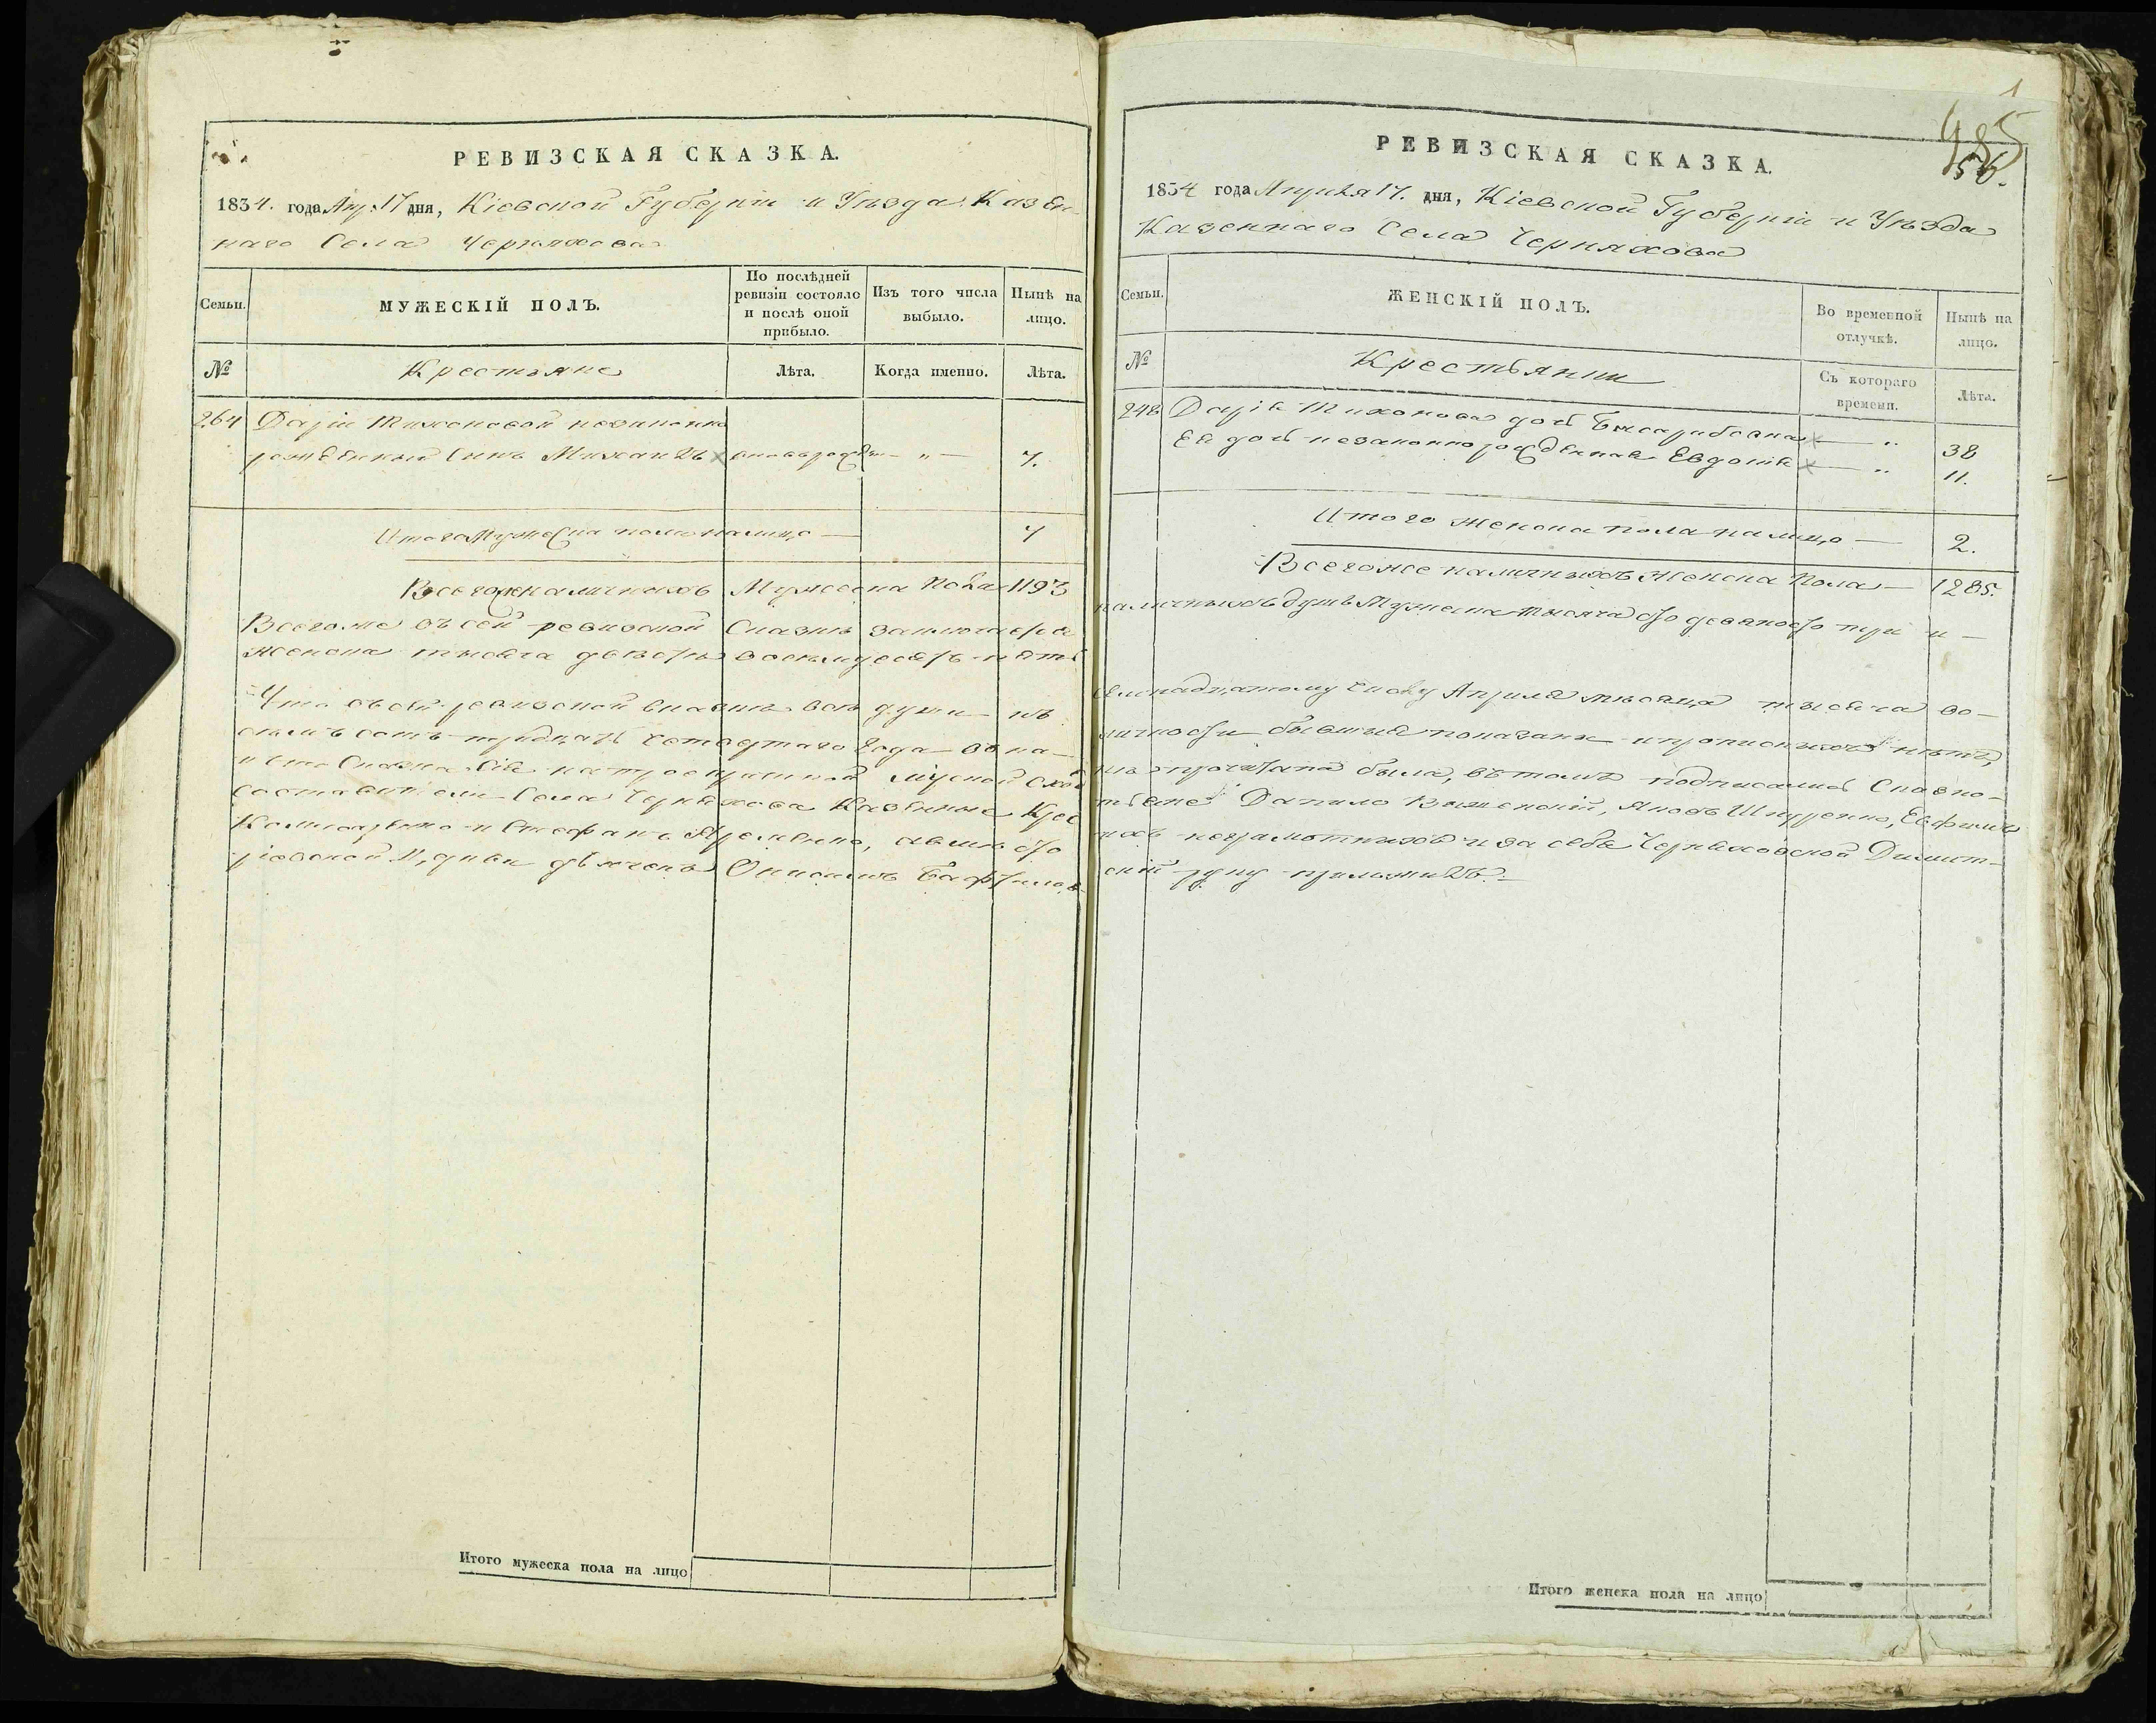 РЕВИЗСКАЯ СКАЗКА.
1834. года Апр: 17 дня, Кіевской Губерніи и Уѣзда Казен-
наго Села Черняхова
Семьи.
МУЖЕСКІЙ ПОЛЪ.
По послѣдней ревизіи состояло и послѣ оной прибыло.
Изъ того числа выбыло.
Нынѣ на лицо.
№
Крестьяне
Лѣта.
Когда именно.
Лѣта.
264 Даріи Тихоновой незаконно
рожденный Сынъ Михаилъ вновь рожден — " — 7.
Итого Мужеска пола налицо — 7
Всего же наличныхъ Мужеска Пола 1193
Всего же въ сей ревизской Сказкѣ заключается
женска тысяча двѣсти восемьдесятъ пять
Что въ сей ревизской Сказкѣ всѣ души къ
сьмъ сотъ тридцать четвертаго года во на-
и что Сказка сія на мірской сход
составители Села Черняхова Казенные Крес
и Стефанъ Яременко, а вмѣсто
Итого мужеска пола на лицо
1
485
56.
РЕВИЗСКАЯ СКАЗКА.
1834 года Апрѣля 17. дня, Кіевской Губерніи и Уѣзда
Казеннаго Села Черняхова
Семьи.
ЖЕНСКІЙ ПОЛЪ.
Во временной отлучкѣ.
Нынѣ на лицо.
№
Крестьянки
Съ котораго времени.
Лѣта.
248 Дарія Тихонова дочь — " 38
Ея дочь незаконнорожденная Евдокія — " 11.
Итого женска пола налицо — 2.
Всего же наличныхъ женска Пола — 1285.
наличныхъ душъ Мужеска тысяча сто девяносто три и —
семнадцатому числу Апрѣля мѣсяца тысяча во-
личности бывшія показаны и прописныхъ нѣтъ,
нѣ прочитана была, въ томъ подписались Сказко-
тьяне Данило Яковъ Шкуренко, Евфимъ
ихъ неграмотныхъ и за себя Черняховской
скій руку приложилъ.
Итого женска пола на лицо